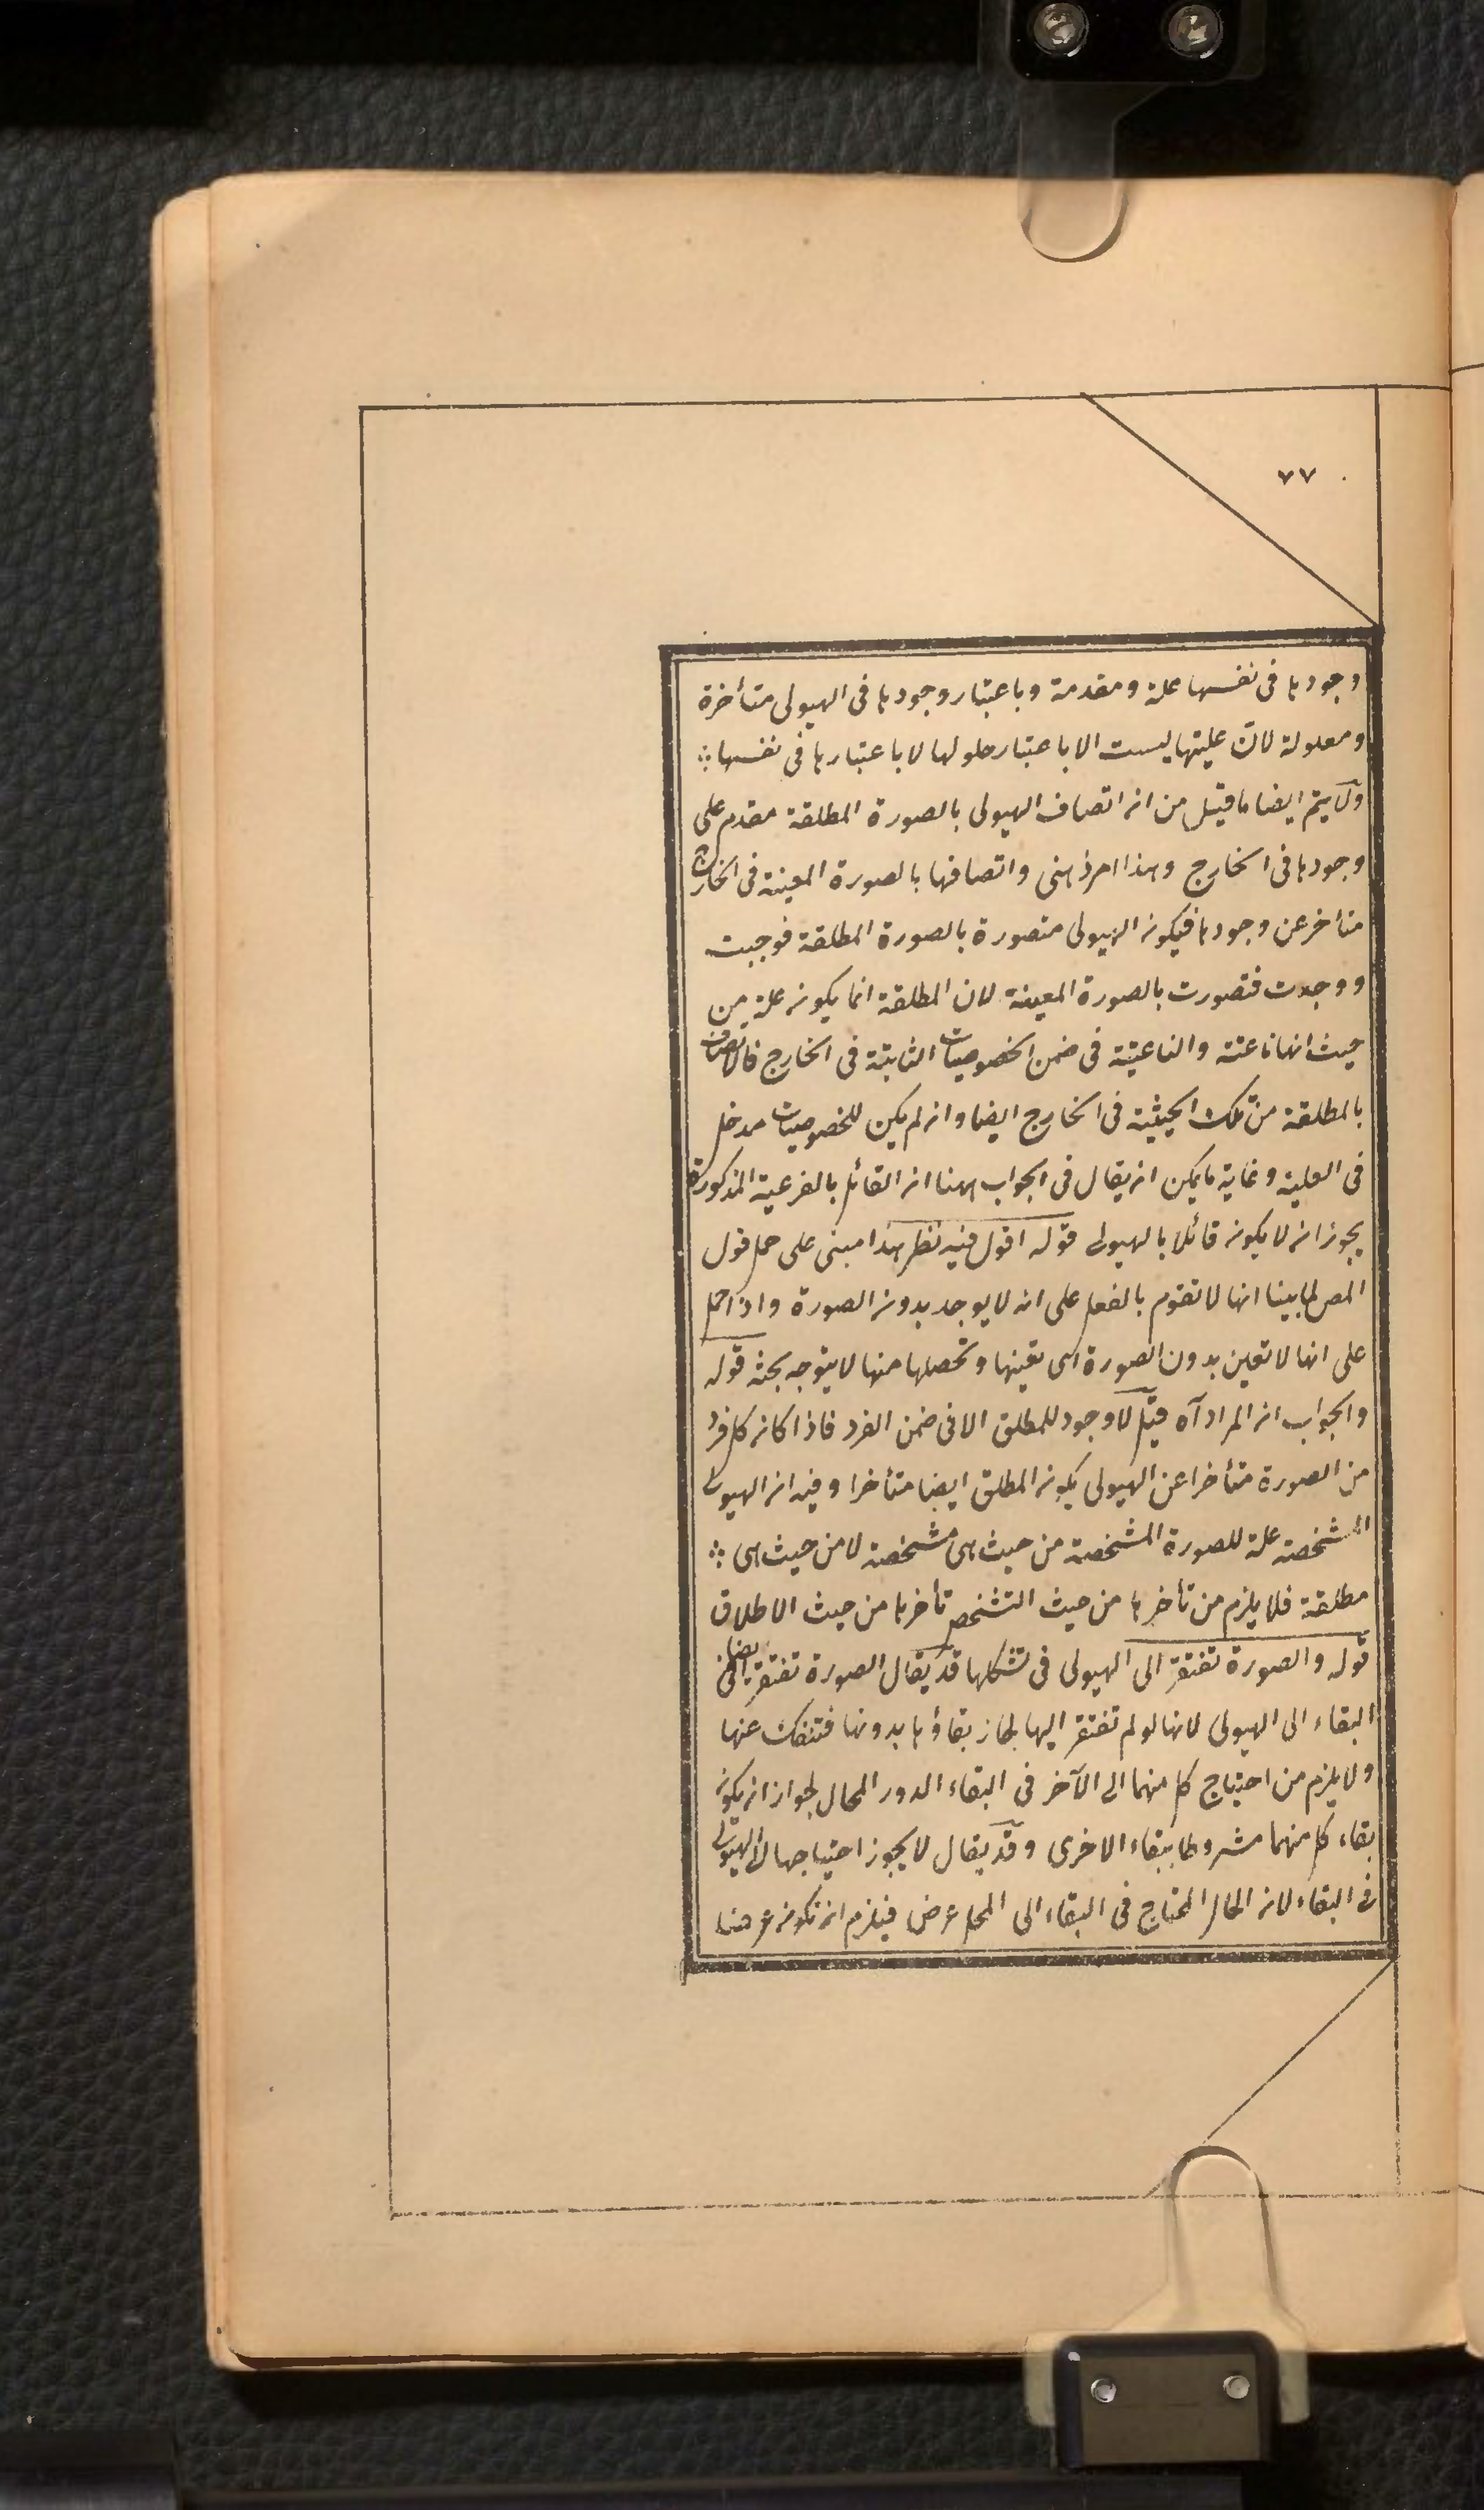 ٧٧
وجودها فى نفسها علة ومقدمة وباعتبار وجودها فى الهيولى متأخرة
ومعلولة لان عليتها ليست الا باعتبار حلولها لا باعتبارها فى نفسها ؞
ولا يتم ايضا ما قيل من ان اتصاف الهيولى بالصورة المطلقة مقدم على
وجودها فى الخارج وهذا امر ذهنى واتصافها بالصورة المعينة فى الخارج
متأخر عن وجودها فيكون الهيولى متصورة بالصورة المطلقة فوجبت
ووجدت فتصورت بالصورة المعينة لان المطلقة انما يكون علة من
حيث انها ناعتة والناعتية فى ضمن الخصوصيات الثابتة فى الخارج فالاتصاف
بالمطلقة من تلك الحيثية فى الخارج ايضا وان لم يكن للخصوصيات مدخل
فى العلية وغاية ما يمكن ان يقال فى الجواب ههنا ان القائل بالفرعية المذكورة
يجوز ان لا يكون قائلا بالهيولى قوله اقول فيه نظر هذا مبنى على حمل قول
المص لما بينا انها لا تقوم بالفعل على انه لا يوجد بدون الصورة واذا حمل
على انها لا تعين بدون الصورة اى تعينها وتحصلها منها لا يتوجه بحثه قوله
والجواب ان المراد آه قيل لا وجود للمطلق الا فى ضمن الفرد فاذا كان كل فرد
من الصورة متأخرا عن الهيولى يكون المطلق ايضا متأخرا وفيه ان الهيولى
المشخصة علة للصورة المشخصة من حيث هى مشخصة لا من حيث هى ؞
مطلقة فلا يلزم من تأخرها من حيث التشخص تأخرها من حيث الاطلاق
قوله والصورة تفتقر الى الهيولى فى تشكلها قد يقال الصورة تفتقر ايضا فى
البقاء الى الهيولى لانها لو لم تفتقر اليها لجاز بقاؤها بدونها فتنفك عنها
ولا يلزم من احتياج كل منهما الى الآخر فى البقاء الدور المحال لجواز ان يكون
بقاء كل منهما مشروطا ببقاء الاخرى وقد يقال لا يجوز احتياجها الى الهيولى
فى البقاء لان الحال المحتاج فى البقاء الى المحل عرض فيلزم ان تكون عرضا